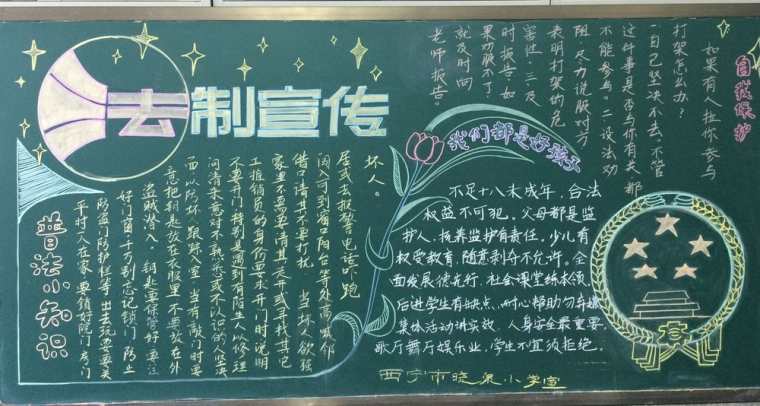 法制宣传
普法小知识
平时人在家,要锁好院门、房门
防盗门防护栏等,出去玩要要关
好门窗千万别忘记锁门,防止
盗贼潜入。钥匙要保管好,要注
意把钥匙放在衣服里,不要放在外
面以防坏跟踪入室。当有敲门时要
问清来意对不熟悉或不认识的人坚决
不要开门特别是遇到有陌生人以修理
工推销员的身份要求开门时说明
家里不需要请其走开或寻找其它
借口请其不要打扰。当坏人欲强
闯入可到窗口阳台等处高喊邻
居或去报警电话吓跑
坏人。
自我保护
如果有人拉你参与
打架怎么办?
一自己坚决不去,不管
这件事是否与你有关都
不能参与。二设法劝
阻,尽力说服对方
表明打架的危
害性。三、及
时报告,如
果劝服不了,
就及时向
老师报告。
我们都是好孩子
不足十八未成年,合法
权益不可犯。父母都是监
护人,抚养监护有责任。少儿有
权受教育,随意剥夺不允许。全
面发展德先行,社会课堂练本领。
后进学生有缺点,耐心帮助勿弃嫌
集体活动讲实效,人身安全最重要。
歌厅舞厅娱乐业,学生不宜须拒绝。
西宁市晓泉小学宣